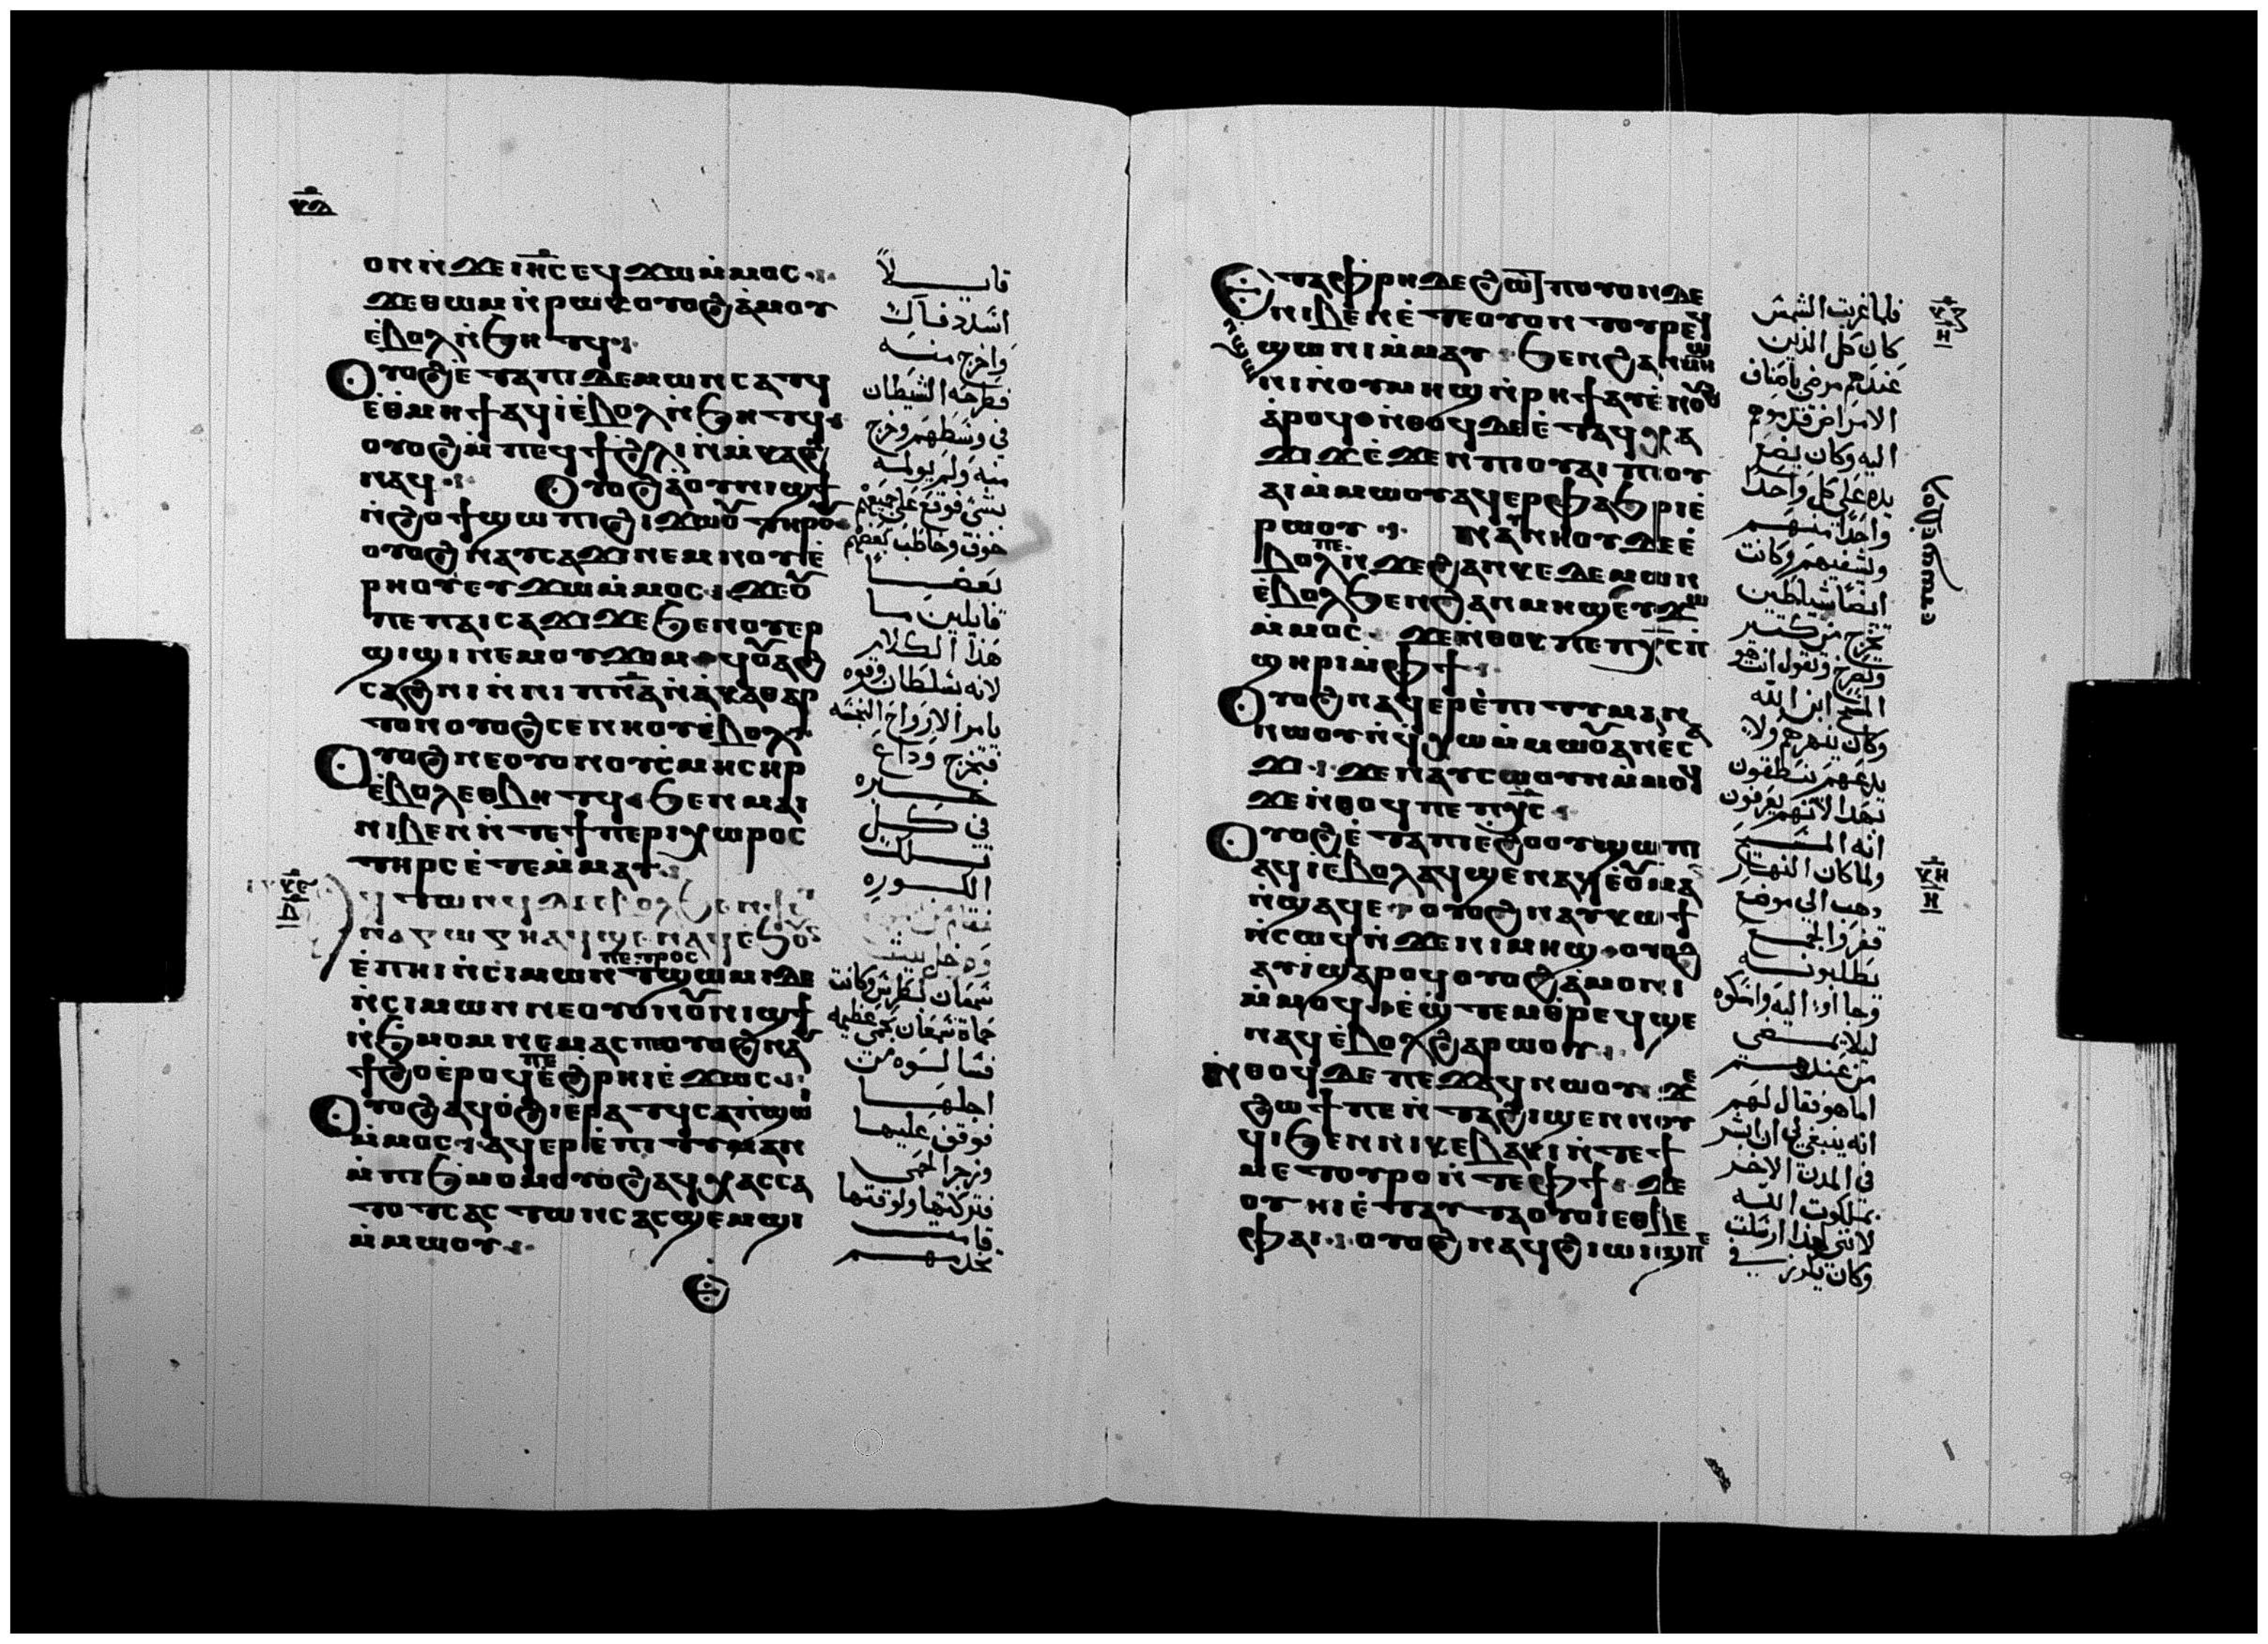 ⲟⲛⲛϫⲉⲓⲏⲥⲉϥϫⲱⲙⲙⲟⲥ
ϫⲉⲑⲱⲙⲛⲣⲱⲕⲟⲩⲟϩⲁⲙⲟⲩ
ⲉⲃⲟⲗⲛϧⲏⲧϥ
Ⲟⲩⲟϩⲉⲧⲁⲡⲓⲇⲉⲙⲱⲛⲥⲁⲧϥ
ⲉⲑⲙⲏϯⲁϥⲓⲉⲃⲟⲗⲛϧⲏⲧϥ
ⲟⲩⲟϩⲙⲡⲉϥϯϩⲗⲓⲛⲙⲕⲁϩ
ⲛⲁϥ Ⲟⲩⲟϩⲁⲟⲩⲛⲓϣϯ
ⲛϩⲟϯϣⲱⲡⲓϩⲓϫⲱⲟⲩⲧⲏⲣⲟⲩ
ⲟⲩⲟϩⲛⲁⲩⲥⲁϫⲓⲛⲉⲙⲛⲟⲩⲉ
ⲣⲏⲟⲩⲉⲩϫⲱⲙⲙⲟⲥϫⲉⲟⲩ
ⲡⲉⲡⲁⲓⲥⲁϫⲓϫⲉϧⲉⲛⲟⲩⲉⲣ
ϣⲓϣⲓⲛⲉⲙⲟⲩϫⲟⲙϥⲟⲩⲁϩ
ⲥⲁϩⲛⲓⲛⲛⲓⲡⲛⲁⲛⲁⲕⲁⲑⲁⲣ
ⲧⲟⲛⲟⲩⲟϩⲥⲉⲛⲏⲟⲩⲉⲃⲟⲗ
Ⲟⲩⲟϩⲛⲉⲟⲩⲟⲛⲟⲩⲥⲙⲏⲥⲏⲣ
ⲉⲃⲟⲗⲉⲑⲃⲏⲧϥϧⲉⲛⲙⲁⲓ
ⲛⲓⲃⲉⲛⲛⲧⲉϯⲡⲉⲣⲓⲭⲱⲣⲟⲥ
ⲧⲏⲣⲥⲉⲧⲉⲙⲙⲁⲩ
ⲉⲡⲏⲓⲛⲥⲓⲙⲱⲛ ⲡⲉⲧⲣⲟⲥ ⲧϣⲱⲙⲓⲇⲉ
ⲛⲥⲓⲙⲱⲛⲛⲉⲟⲩⲟⲛⲟⲩⲛⲓϣϯ
ⲛϧⲙⲟⲙⲛⲉⲙⲁⲥⲡⲟⲩⲟϩⲛⲁⲩ
ϯϩⲟⲉⲣⲟϥⲡⲉⲉϩⲣⲏⲓⲉϫⲱⲥ
Ⲟⲩⲟϩⲁϥⲟϩⲓⲉⲣⲁⲧϥⲥⲁⲡϣⲱ
ⲙⲙⲟⲥⲁϥⲉⲣⲉⲡⲓⲧⲓⲙⲁⲛ
ⲙⲡⲓϧⲙⲟⲙⲟⲩⲟϩⲁϥⲭⲁⲥⲥⲁ
ⲧⲟⲧⲥⲁⲥⲧⲱⲛⲥⲁⲥϣⲉⲙϣⲓ
ⲙⲙⲱⲟⲩ
قايلا
انسد فاك
واخرج منه
فطرحه الشيطان
في وسطهم وخرج
منه ولم يولمه
بشي فوقع على جميعهم
خوف وخاطب بعضهم
بعضا
قايلين ما
هذا الكلام
لانه بسلطان وقوه
يامر الارواح النجسه
فتخرج وذاع
خبره
في كل
تلك
الكوره
سمعان بطرس وكانت
حماة سمعان بحمى عظيمه
فسالوه من
اجلها
فوقف عليها
وزجر الحمى
فتركتها ولوقتها
قامت
تخدمهم
Ⲉⲧⲁⲫⲣⲏⲇⲉϩⲱⲧⲡⲟⲩⲟⲛⲇⲉ
ⲛⲓⲃⲉⲛⲉⲧⲉⲟⲩⲟⲛⲧⲟⲩⲣⲉϥ
ϣⲱⲛⲓⲙⲙⲁⲩϧⲉⲛϩⲁⲛϣⲱ
ⲛⲓⲛⲟⲩⲙⲏϣⲛⲣⲏϯⲁⲩⲉⲛⲟⲩ
ⲁⲣⲟϥⲑⲛⲑⲟϥⲇⲉⲉⲧⲁϥⲭⲁ
ϫⲓϫⲉϫⲉⲛⲡⲓⲟⲩⲁⲓⲡⲓⲟⲩ
ⲁⲓⲙⲙⲱⲟⲩⲁϥⲉⲣⲫⲁϧⲣⲓⲉ
ⲣⲱⲟⲩ ⲛⲁⲩⲛⲏⲟⲩⲇⲉⲉ
ⲃⲟⲗⲡⲉⲛϫⲉϩⲁⲛⲕⲉⲇⲉⲙⲱⲛ
ⲉⲃⲟⲗϧⲉⲛϩⲁⲛⲙⲏϣⲉⲩϫⲱ
ⲙⲙⲟⲥ ϫⲉⲛⲑⲟⲕⲡⲉⲡⲭⲥⲡ
ϣⲏⲣⲓⲙⲫϯ
Ⲟⲩⲟϩⲛⲁϥⲉⲣⲉⲡⲓⲧⲓⲙⲁⲛ
ⲛⲱⲟⲩⲛϥⲭⲱⲙⲙⲱⲟⲩⲁⲛⲉⲥⲁ
ϫⲓϫⲉⲛⲁⲩⲥⲱⲟⲩⲛⲙⲙⲟϥ
ϫⲉⲛⲑⲟϥⲡⲉⲡⲭⲥ
Ⲟⲩⲟϩⲉⲧⲁⲡⲓⲉϩⲟⲟⲩϣⲱⲡⲓ
ⲁϥⲓⲉⲃⲟⲗⲁϥϣⲉⲛⲁϥⲉⲟⲩⲙⲁ
ⲛϣⲁϥⲉⲟⲩⲟϩⲛⲁⲩⲕⲱϯ
ⲛⲥⲱϥⲛϫⲉⲛⲓⲙⲏϣⲟⲩⲟϩ
ⲁⲩⲓϣⲁⲣⲟϥⲟⲩⲟϩⲁⲙⲟⲛⲓ
ⲙⲙⲟϥϩⲉϣⲧⲉⲙⲑⲣⲉϥϣⲉ
ⲛⲁϥⲉⲃⲟⲗϩⲁⲣⲱⲟⲩ
ⲛⲑⲟϥⲇⲉⲡⲉϫⲁϥⲛⲱⲟⲩϫⲉ
ϩⲱϯⲡⲉⲛⲧⲁϩⲓϣⲉⲛⲛⲟⲩ
ϥⲓϧⲉⲛⲛⲓⲕⲉⲃⲁⲕⲓⲛⲧⲉϯ
ⲙⲉⲧⲟⲩⲣⲟⲛⲧⲉⲫϯϫⲉ
ⲟⲩⲏⲓⲉⲧⲁⲩⲧⲁⲟⲩⲟⲓⲉⲑⲃⲉ
ⲫⲁⲓⲟⲩⲟϩⲛⲁϥϩⲓⲱⲓϣⲡⲉ
فلما غربت الشمس
كان كل الذين
عندهم مرضى باصناف
الامراض قدموهم
اليه وكان يضع
يده على كل واحدا
واحدا منهم
ويشفيهم وكانت
ايضا شياطين
تخرج من كثير
وتصرخ وتقول انت هو
المسيح ابن الله
وكان ينهرهم ولا
يدعهم ينطقون
بهذا لانهم يعرفون
انه المسيح
ولما كان النهار
ذهب الي موضع
قفر والجمع
يطلبونه
وجااوا اليه وامسكوه
ليلا يمضي
من عندهم
اما هو فقال لهم
انه ينبغي لي ان ابشر
في المدن الاخر
بملكوت الله
لانني لهذا ارسلت
وكان يكرز في